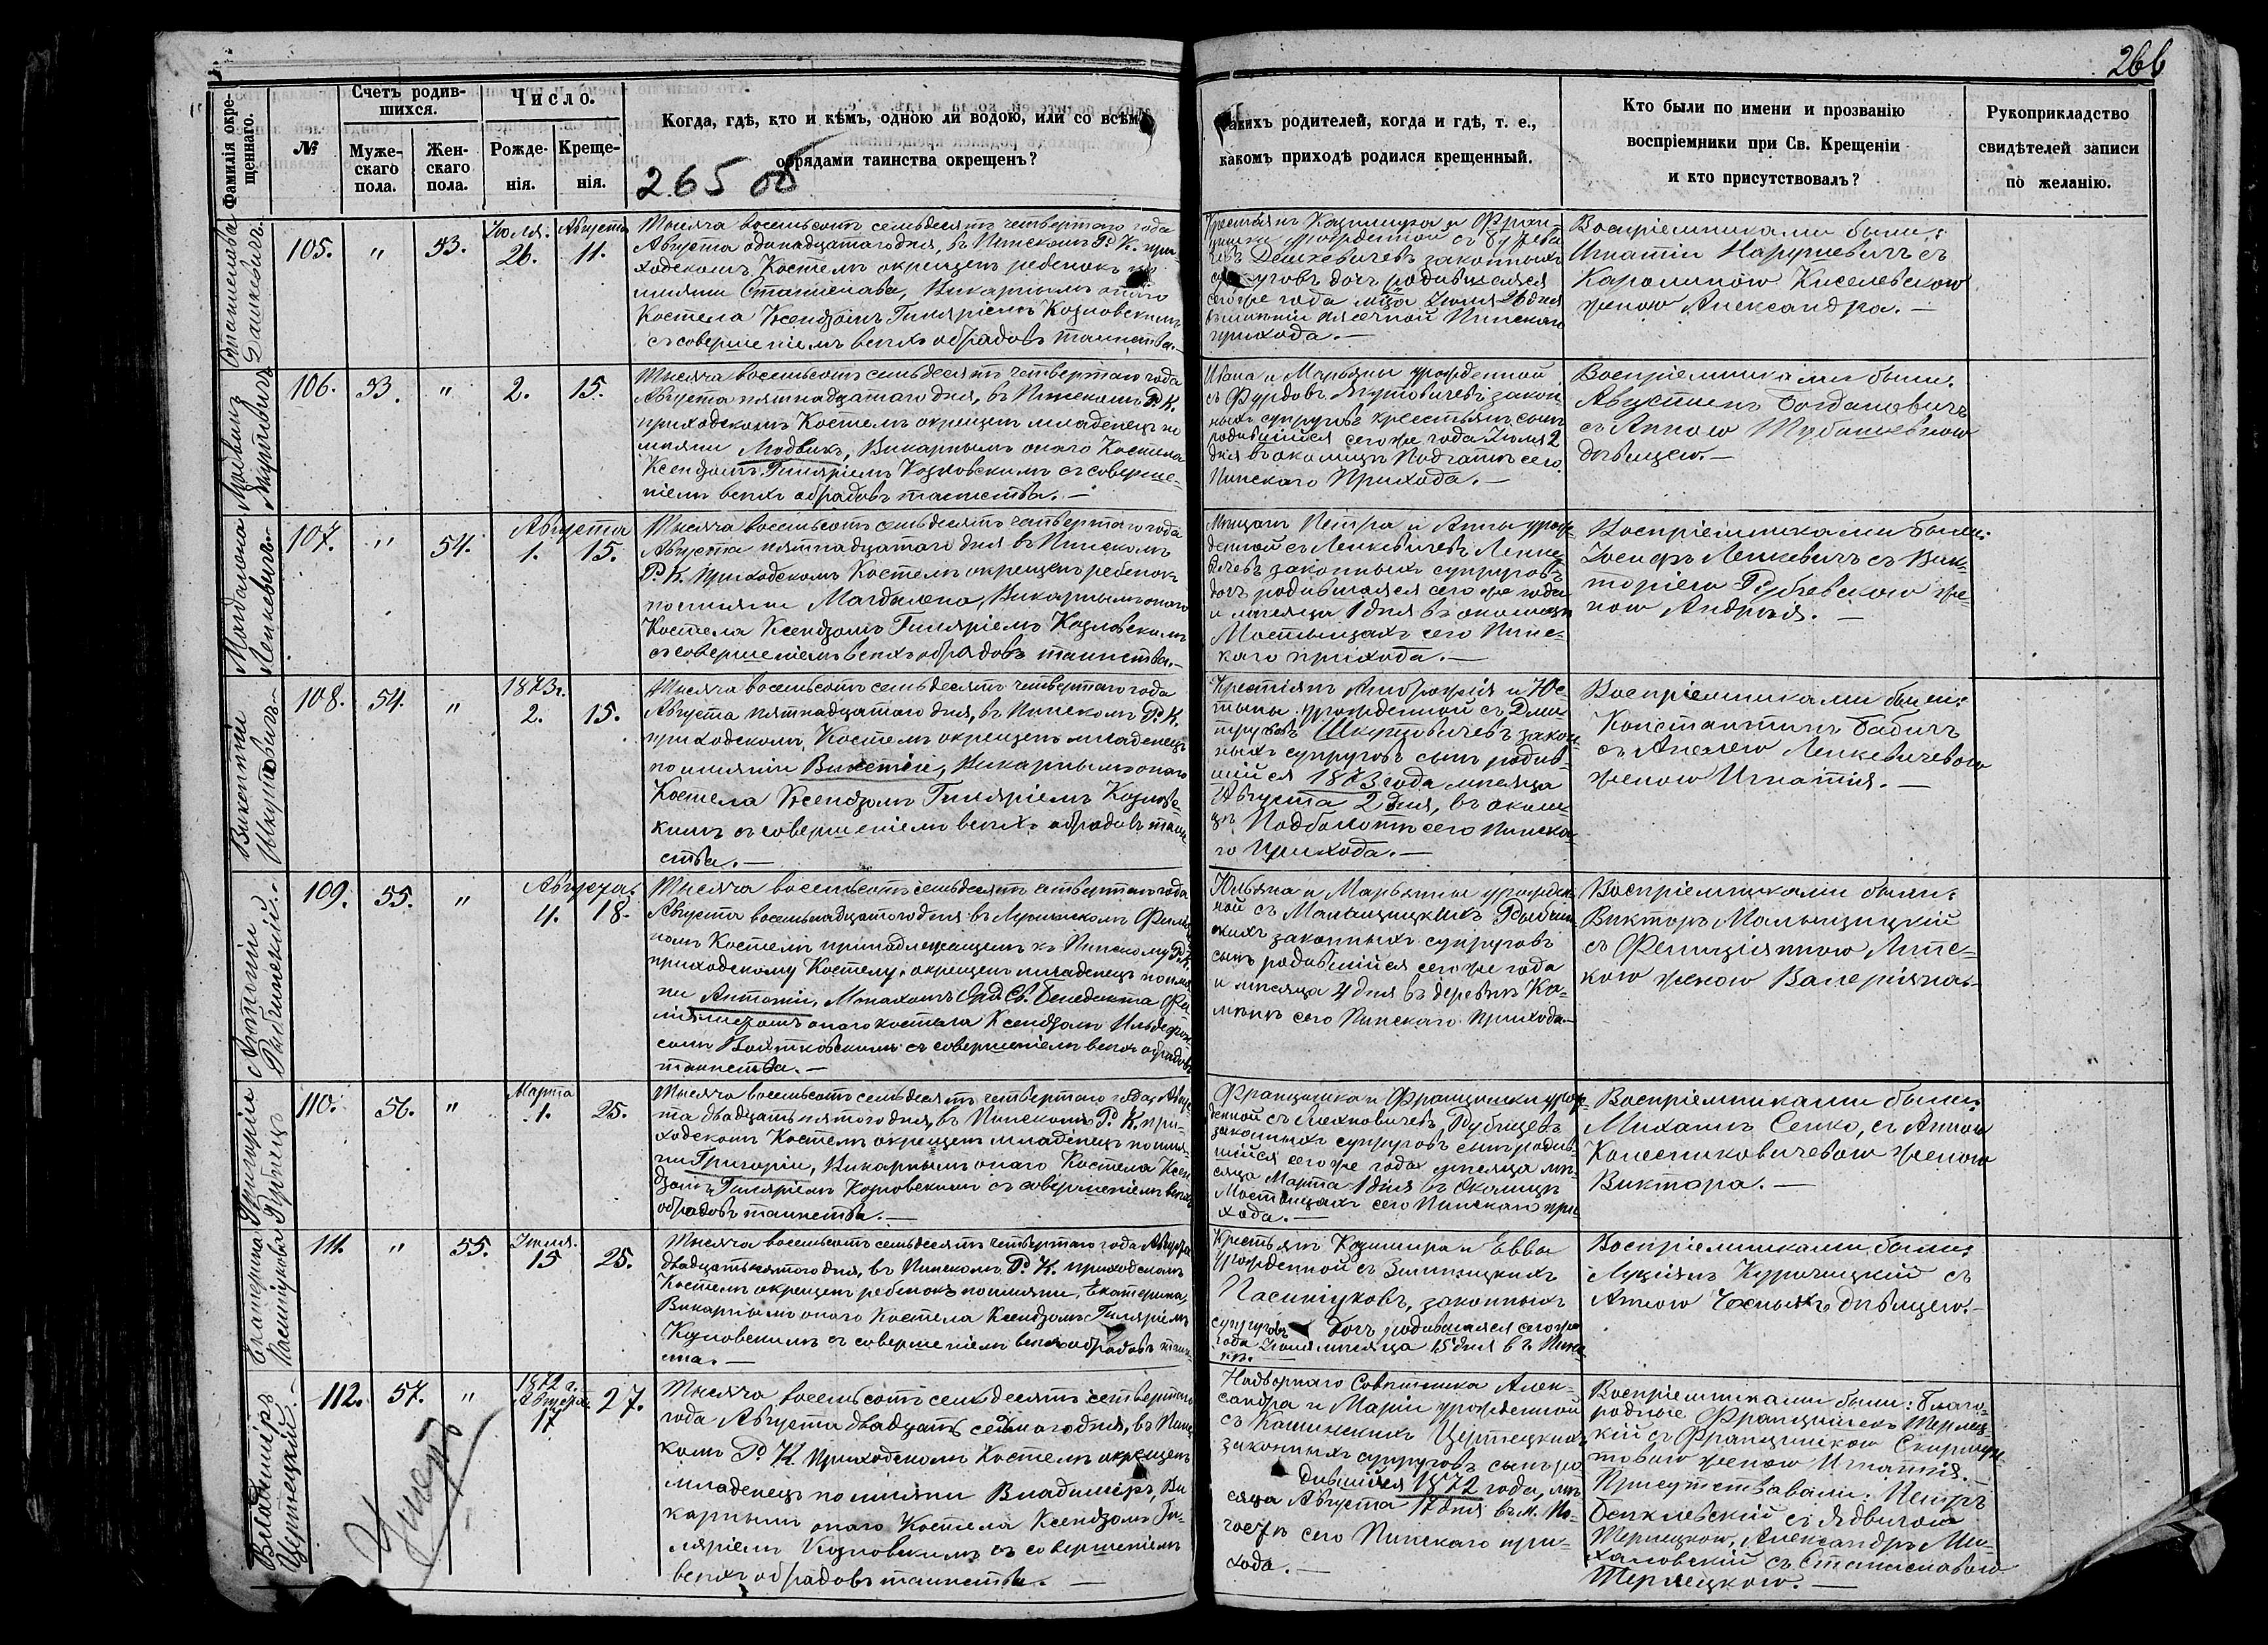 266
Фамилія окрещеннаго.
№
Счетъ родившихся.
Мужескаго пола.
Женскаго пола.
Число.
Рожденія.
Крещенія.
Когда, гдѣ, кто и кѣмъ, одною ли водою, или со всѣми
обрядами таинства окрещенъ?
265 об
какихъ родителей, когда и гдѣ, т. е.,
какомъ приходѣ родился крещенный.
Кто были по имени и прозванію
воспріемники при Св. Крещеніи
и кто присутствовалъ?
Рукоприкладство
свидѣтелей записи
по желанію.
Станислава
Дашкевичъ.
105.
"
53.
Іюля.
26.
Августа
11.
Тысяча восемьсотъ семьдесятъ четвертаго года
Августа одинадцатаго дня, въ Пинскомъ Р. К. при-
ходскомъ Костелѣ окрещенъ ребенокъ по
имени Станислава, Викарнымъ онаго
Костела Ксендзомъ Гиляріемъ Козловскимъ
съ совершеніемъ всѣхъ обрядовъ таинства.—
Крестьянъ Казимира и Фран-
законныхъ
дочь родившаяся
сего же года мѣсяца Іюля 26 дня
Пинскаго
прихода.—
Воспріемниками были:
Игнатій Нарушевичъ съ
Каролиною Киселевскою
женою Александра.—
Людвикъ
106.
53.
"
2.
15.
Тысяча восемьсотъ семьдесятъ четвертаго года
Августа пятнадцатаго дня, въ Пинскомъ Р. К.
приходскомъ Костелѣ окрещенъ младенецъ по
имени Людвикъ, Викарнымъ онаго Костела
Ксендзомъ Гиляріемъ Козловскимъ съ соверше-
ніемъ всѣхъ обрядовъ таинства.—
Ивана и Марьяны урожденной
закон-
ныхъ супруговъ крестьянъ сынъ
родившійся сего же года Іюля 2
дня въ околицѣ сего
Пинскаго Прихода.—
Воспріемниками были:
Августинъ Богдановичъ
съ Анною
дѣвицею.—
Магдалена
Ленкевичъ.
107.
"
54.
Августа
1.
15.
Тысяча восемьсотъ семьдесятъ четвертаго года
Августа пятнадцатаго дня въ Пинскомъ
Р. К. Приходскомъ Костелѣ окрещенъ ребенокъ
по имени Магдалена, Викарнымъ онаго
Костела Ксендзомъ Гиляріемъ Козловскимъ
съ совершеніемъ всѣхъ обрядовъ таинства.—
Мѣщанъ Петра и Анны урож-
денной съ Ленкевичевъ Ленке-
вичевъ законныхъ супруговъ
дочь родившаяся сего же года
и мѣсяца 1 дня въ околицѣ
Мостыщахъ сего Пинс-
каго прихода.—
Воспріемниками были:
Іосифъ Ленкевичъ съ Вик-
торіею же-
ною Андрея.—
Викентій
Шкутовичъ.
108.
54.
"
1873 г.
2.
15.
Тысяча восемьсотъ семьдесятъ четвертаго года
Августа пятнадцатаго дня, въ Пинскомъ Р. К.
приходскомъ Костелѣ окрещенъ младенецъ
по имени Викентій, Викарнымъ онаго
Костела Ксендзомъ Гиляріемъ Козловс-
кимъ съ совершеніемъ всѣхъ обрядовъ таин-
ства.—
Крестіянъ Амброжія и Юс-
тыны урожденной съ Дми-
закон-
ныхъ супруговъ сынъ родив-
шійся 1873 года мѣсяца
Августа 2 дня, въ околи-
цѣ Подболотѣ сего Пинска-
го Прихода.—
Воспріемниками были:
Константинъ Бабичъ
съ Ленкевичевою
женою Игнатія.—
Антоній
Рыбчинскій.
109.
55.
"
Августа.
4.
18.
Тысяча восемьсотъ семьдесятъ четвертаго года
Августа восемьнадцатаго дня въ Филіаль-
номъ Костелѣ принадлежащемъ къ Пинскому Р. К.
приходскому Костелу, окрещенъ младенецъ по име-
ни Антоній, Монахомъ Орд. Св. Бенедикта
онаго костела Ксендзомъ
съ совершеніемъ всѣхъ обрядовъ
таинства.—
и Марьянны урожден-
ной съ Малыщицкихъ Рыбчин-
скихъ законныхъ супруговъ
сынъ родившійся сего же года
и мѣсяца 4 дня въ деревнѣ
сего Пинскаго Прихода.—
Воспріемниками были:
Викторъ Малыщицкій
съ
женою Валеріяна.—
Григорій
110.
56.
"
Марта
1.
25.
Тысяча восемьсотъ семьдесятъ четвертаго года Авгус-
та двадцать пятого дня, въ Пинскомъ Р. К. при-
ходскомъ Костелѣ окрещенъ младенецъ по име-
ни Григорій, Викарнымъ онаго Костела Ксен-
дзомъ Гиляріемъ Козловскимъ съ совершеніемъ всѣхъ
обрядовъ таинства.—
Францишка и Францишки урож-
денной съ
законныхъ супруговъ сынъ родив-
шійся сего же года мѣсяца мѣ-
сяца Марта 1 дня въ Околицѣ
Мостыщахъ сего Пинскаго при-
хода.—
Воспріемниками были:
Михаилъ Сенко, съ Анною
Колесниковичевою женою
Виктора.—
Екатерина
111.
"
55.
Іюля.
15
25.
Тысяча восемьсотъ семьдесятъ четвертаго года Августа
двадцать пятого дня, въ Пинскомъ Р. К. приходскомъ
Костелѣ окрещенъ ребенокъ по имени Екатерина,
Викарнымъ онаго Костела Ксендзомъ Гиляріемъ
Козловскимъ съ совершеніемъ всѣхъ обрядовъ таин-
ства.—
Крестьянъ Казимира и Еввы
урожденной съ
законныхъ
супруговъ дочь родившаяся сего же
года Іюля мѣсяца 15 дня въ г. Пинс-
кѣ.
Воспріемниками были:
Луціянъ Курочицкій съ
Анною дѣвицею.—
Владиміръ
Цертецкій.
112.
57.
"
1872 г.
Августа
17
27.
Умеръ
Тысяча восемьсотъ семьдесятъ четвертаго
года Августа двадцать седьмого дня, въ Пинс-
комъ Р. К. Приходскомъ Костелѣ окрещенъ
младенецъ по имени Владиміръ, Ви-
карнымъ онаго Костела Ксендзомъ Ги-
ляріемъ Козловскимъ съ совершеніемъ
всѣхъ обрядовъ таинства.—
Надворнаго Совѣтника Алек-
сандра и Маріи урожденной
законныхъ супруговъ сынъ ро-
дившійся 1872 года, мѣ-
сяца Августа 17 дня въ м. По-
гостѣ сего Пинскаго при-
хода.—
Воспріемниками были: Благо-
родные Францишекъ Терлец-
кій съ Францишкою Скирмун-
товою женою Игнатія.—
Присутствовали: Петръ
съ Ядвигою
Терлецкою, Александръ Ми-
халовскій съ Станиславою
Терлецкою.—